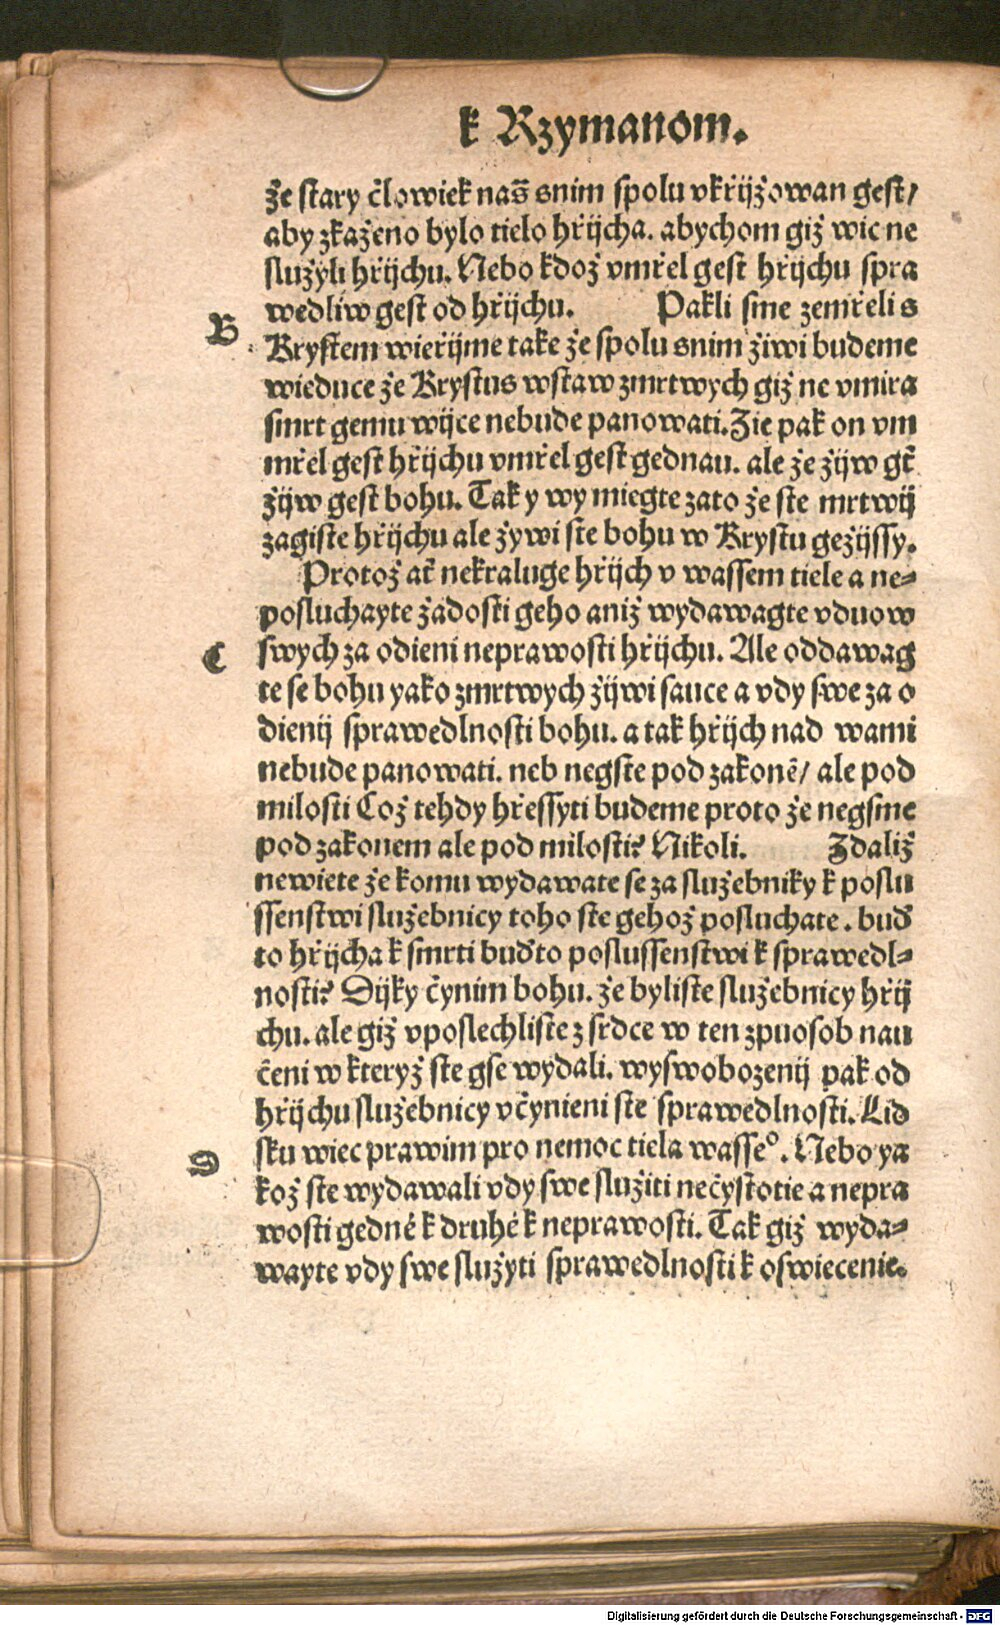 k Rzymanom.
že stary člowiek nas̄ snim spolu vkřijžowan gest/
aby zkaženo bylo tielo hřijcha. abychom giž wic ne
služyli hřijchu. Nebo kdož vmřel gest hřijchu spra
wedliw gest od hřijchu. Pakli sme zemřeli s
B
Krystem wieřijme take že spolu snim žiwi budeme
wieduce že Krystus wstaw zmrtwych giž ne vmira
smrt gemu wijce nebude panowati. Zie pak on vm
mřel gest hřijchu vmřel gest gednau. ale že žijw gt̄
žijw gest bohu. Tak y wy miegte zato že ste mrtwij
zagiste hřijchu ale žywi ste bohu w Krystu gežijssy.
Protož ať nekraluge hřijch v wassem tiele a ne-
posluchayte žadosti geho aniž wydawagte vduow
C
swych za odieni neprawosti hřijchu. Ale oddawag
te se bohu yako zmrtwych žijwi sauce a vdy swe za o
dienij sprawedlnosti bohu. a tak hřijch nad wami
nebude panowati. neb negste pod zakonē/ ale pod
milosti Což tehdy hřessyti budeme proto že negsme
pod zakonem ale pod milosti? Nikoli. Zdaliž
newiete že komu wydawate se za služebniky k poslu
ssenstwi služebnicy toho ste gehož posluchate. buď
to hřijcha k smrti buďto poslussenstwi k sprawedl-
nosti? Dijky čynim bohu. že byliste služebnicy hřij
chu. ale giž vposlechliste z srdce w ten zpuosob nau
čeni w kteryž ste gse wydali. wyswobozenij pak od
hřijchu služebnicy včynieni ste sprawedlnosti. Lid
D
sku wiec prawim pro nemoc tiela wasse°. Nebo ya
kož ste wydawali vdy swe služiti nečystotie a nepra
wosti gedné k druhé k neprawosti. Tak giž wyda-
wayte vdy swe služyti sprawedlnosti k oswiecenie.
Digitalisierung gefördert durch die Deutsche Forschungsgemeinschaft - DFG